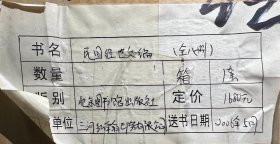 书名 民国经世文编 (全八册)
数量 箱 1套
版别 北京图书馆出版社 定价 1680元
单位 三河 送书日期 2006年5月